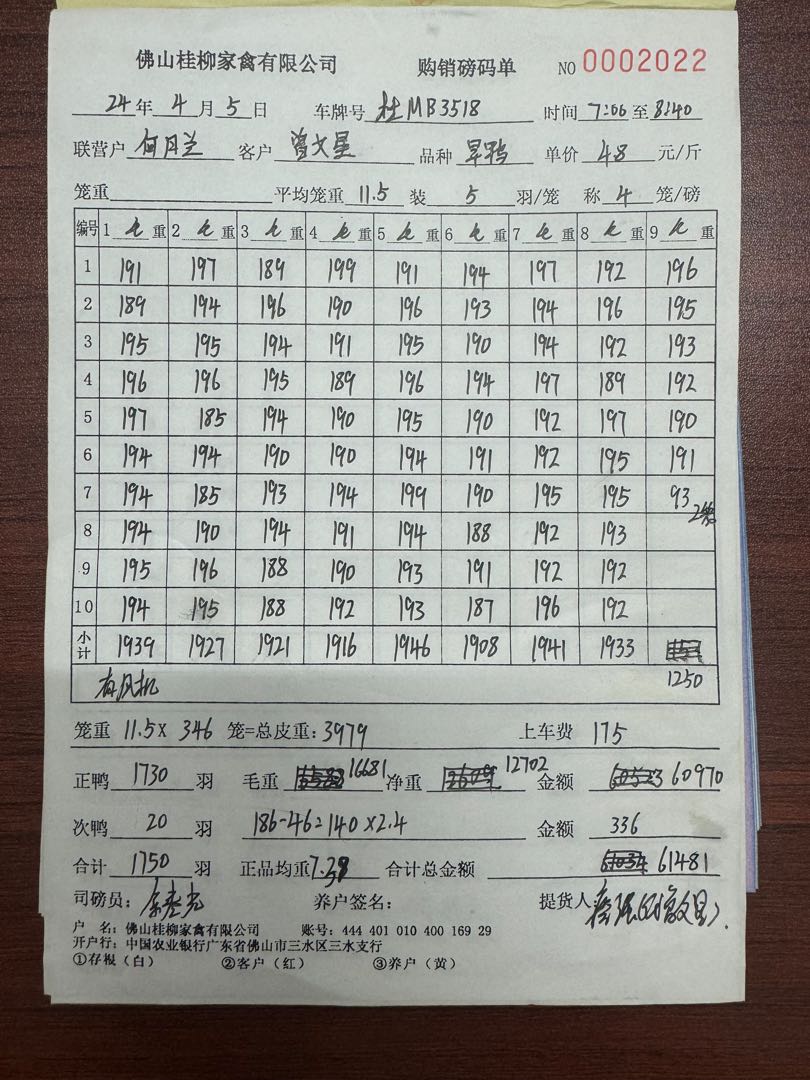 佛山桂柳家禽有限公司 购销磅码单 NO 0002022
24 年 4 月 5 日 车牌号 桂MB3518 时间 7:06 至 8:40
联营户 何月兰 客户 曾文星 品种 旱鸭 单价 4.8 元/斤
笼重 平均笼重 11.5 装 5 羽/笼 称 4 笼/磅
编号 1 毛 重 2 毛 重 3 毛 重 4 毛 重 5 毛 重 6 毛 重 7 毛 重 8 毛 重 9 毛 重
1 191 197 189 199 191 194 197 192 196
2 189 194 196 190 196 193 194 196 195
3 195 195 194 191 195 190 194 192 193
4 196 196 195 189 196 194 197 189 192
5 197 185 194 190 195 190 192 197 190
6 194 194 190 190 194 191 192 195 191
7 194 185 193 194 199 190 195 195 93 2笼
8 194 190 194 191 194 188 192 193
9 195 196 188 190 193 191 192 192
10 194 195 188 192 193 187 196 192
小计 1939 1927 1921 1916 1946 1908 1941 1933 1250
有风机
笼重 11.5 x 346 笼=总皮重: 3979 上车费 175
正鸭 1730 羽 毛重 16681 净重 12702 金额 60970
次鸭 20 羽 186-46=140 x 2.4 金额 336
合计 1750 羽 正品均重 7.38 合计总金额 61481
司磅员: 养户签名: 提货人
户 名: 佛山桂柳家禽有限公司 账号: 444 401 010 400 169 29
开户行: 中国农业银行广东省佛山市三水区三水支行
①存根(白) ②客户(红) ③养户(黄)